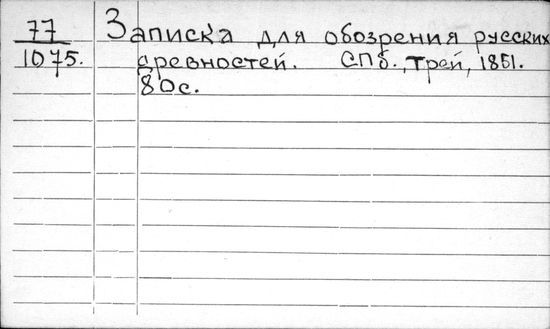 77 Записка для обозрения русских
1075. древностей. СПб., Трей, 1851.
80с.